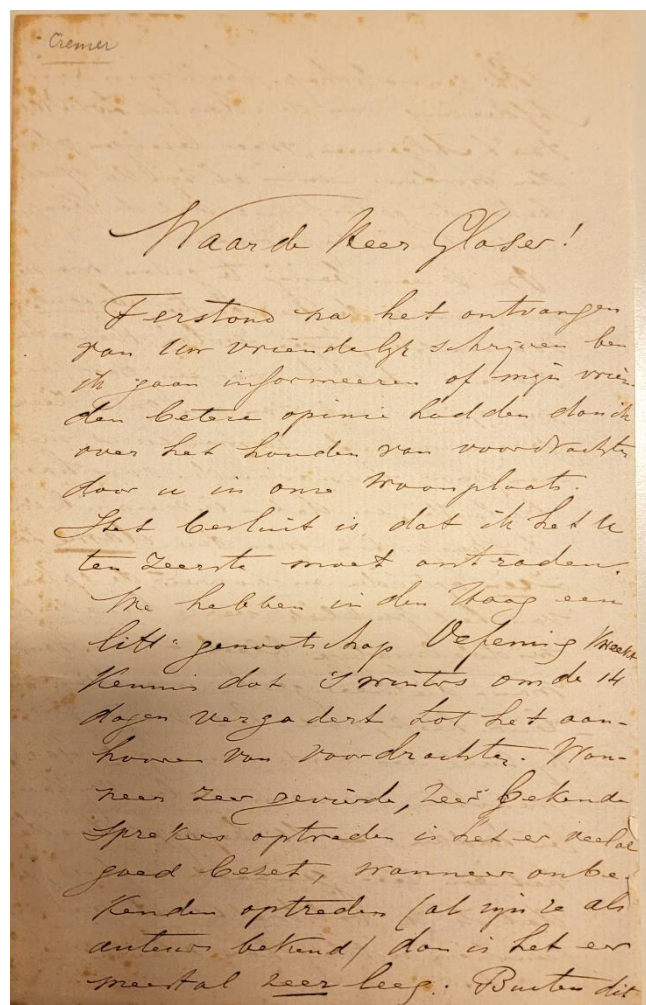 Cremer
Waarde Heer Glaser!
Terstond na het ontvangen
van Uw vriendelijk schrijven ben
ik gaan informeeren of mijn vrien-
den betere opinie hadden dan ik
over het houden van voordrachten
door u in onze woonplaats.
Het besluit is dat ik het U
ten zeerste moet ontraden.
We hebben in den Haag een
litt: genootschap Oefening Kweekt
Kennis dat 's winters om de 14
dagen vergadert tot het aan-
hooren van voordrachten. Wan-
neer zeer gevierde, zeer bekende
sprekers optreden is het er veelal
goed bezet, wanneer onbe-
kenden optreden (al zijn ze als
auteurs bekend) dan is het er
meestal zeer leeg. Buiten dit